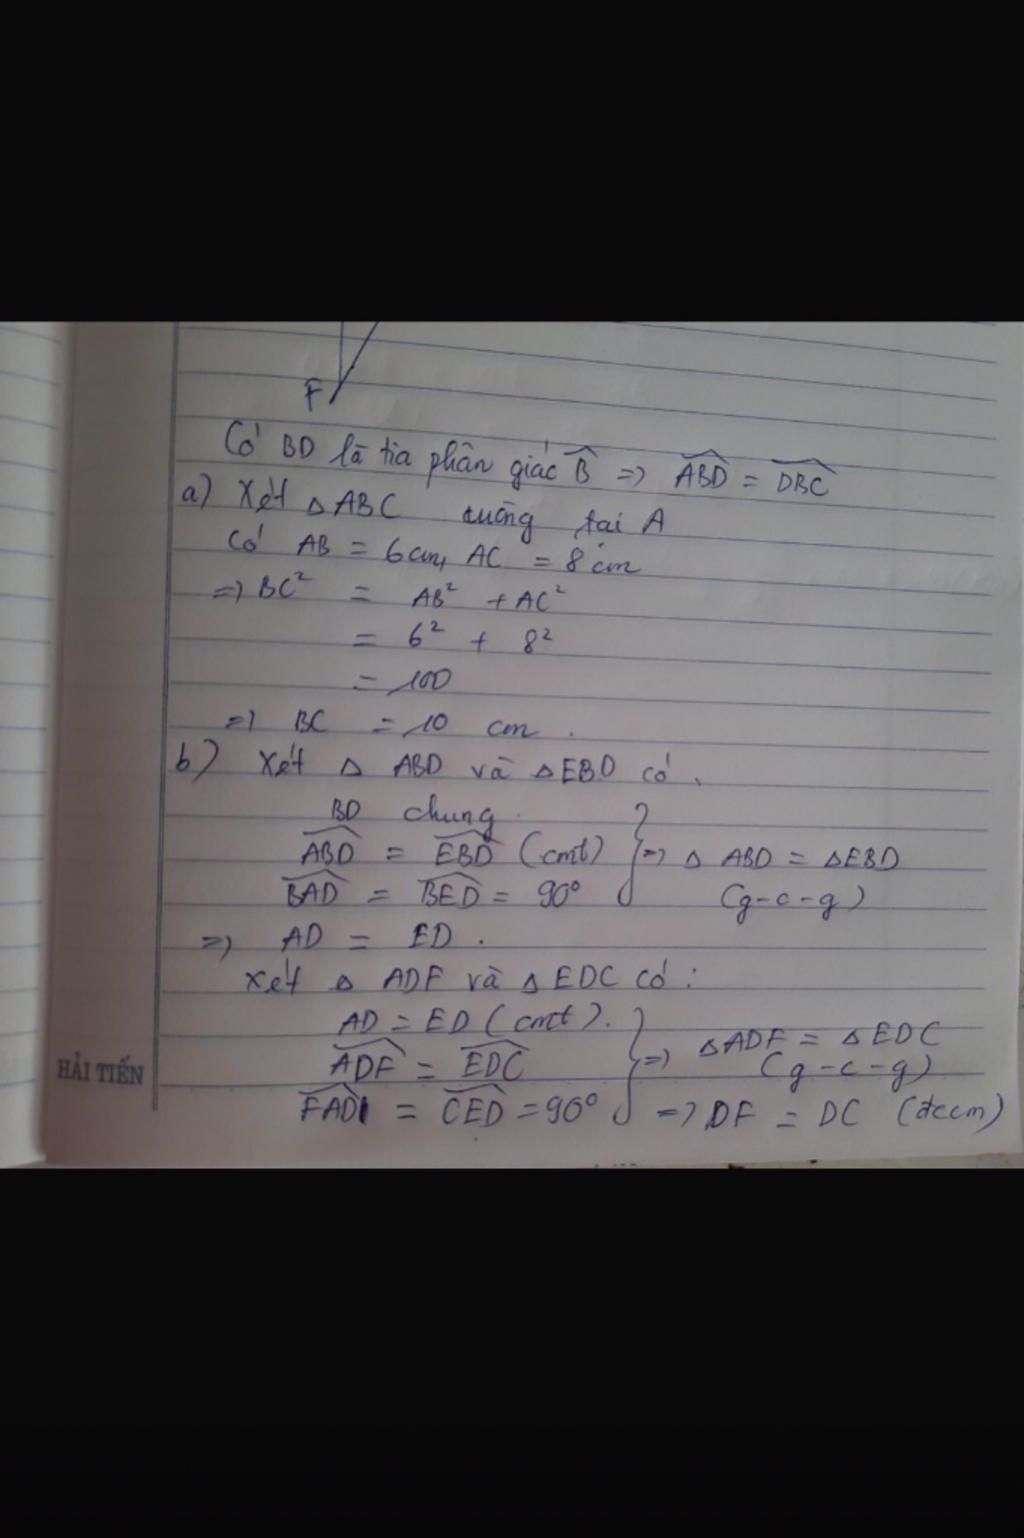 F
Có BD là tia phân giác B̂ => ABD̂ = DBĈ
a) Xét △ABC vuông tại A
Có AB = 6cm, AC = 8cm
=> BC² = AB² + AC²
= 6² + 8²
= 100
=> BC = 10 cm.
b) Xét △ ABD và △EBD có.
BD chung.
ABD̂ = EBD̂ (cmt) } => △ ABD = △EBD
BAD̂ = BED̂ = 90° (g-c-g)
=> AD = ED.
Xét △ ADF và △ EDC có:
AD = ED (cmt).
ADF̂ = EDĈ } => △ADF = △EDC
(g-c-g)
FAD̂ = CED̂ = 90° => DF = DC (đccm)
HẢI TIẾN